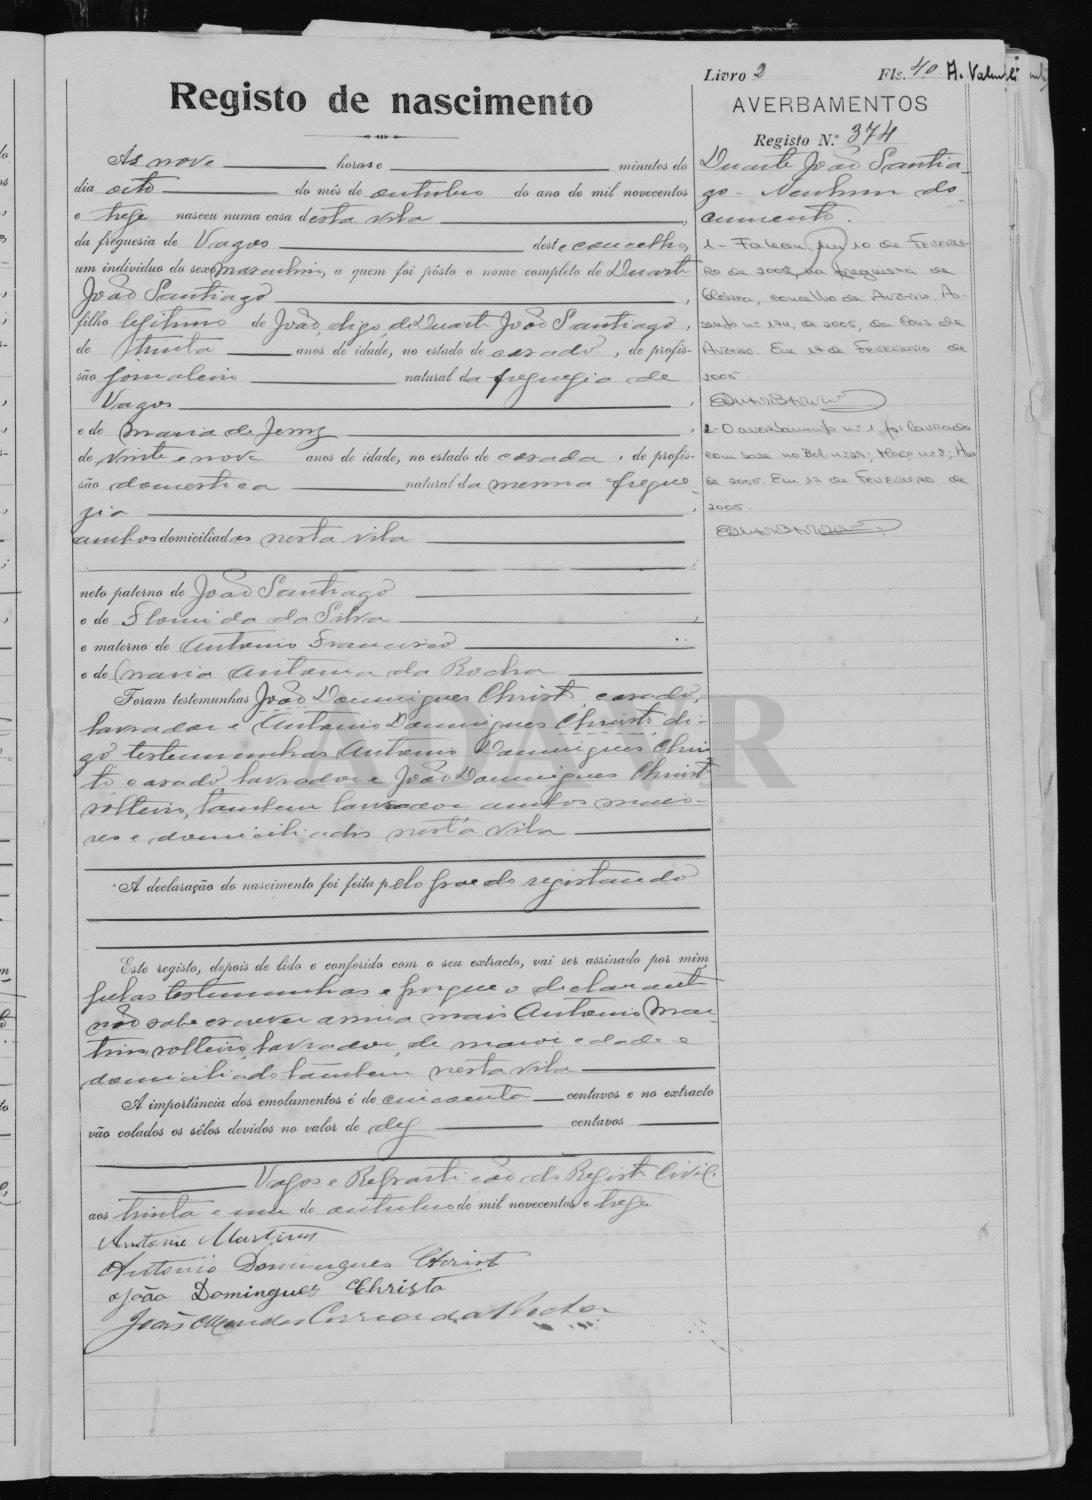 Livro 2 Fls. 40 A. Valen
Registo de nascimento
AVERBAMENTOS
Registo N.º 374
Ás nove horas e minutos do
dia oito do mês de outubro do ano de mil novecentos
e treze nasceu numa casa desta vila,
da freguesia de Vagos deste concelho,
um individuo do sexo masculino, a quem foi pôsto o nome completo de Duarte
João Santiago,
filho legitimo de João, digo, de Duarte João Santiago,
de trinta anos de idade, no estado de casado, de profis-
são jornaleiro natural da freguezia de
Vagos,
e de Maria de Jesuz,
de vinte e nove anos de idade, no estado de casada, de profis-
são domestica natural da mesma fregue-
zia,
ambos domiciliados nesta vila
neto paterno de João Santiago
e de Florinda da Silva,
e materno de Antonio Francisco
e de Maria Antonia da Rocha
Foram testemunhas João Domingues Christo, casado,
lavrador e Antonio Domingues Christo, di-
go testemunhas Antonio Domingues Chris-
to casado lavrador e João Domingues Christo
solteiro, tambem lavrador ambos maio-
res e domiciliados nesta vila
A declaração do nascimento foi feita pelo pae do registando
Este registo, depois de lido e conferido com o seu extracto, vai ser assinado por mim
pelas testemunhas e porque o declarante
não sabe escrever assina mais Antonio Mar-
tins solteiro, lavrador, de maior edade e
domiciliado tambem nesta vila
A importância dos emolumentos é de cincoenta centavos e no extracto
vão colados os sêlos devidos no valor de dez centavos
Vagos e Repartição do Registo Civil
aos trinta e um de outubro de mil novecentos e treze
Antonio Martins
Antonio Domingues Christo
João Domingues Christo
João Mendes Correia da Rocha
Duarte João Santia-
go - Nenhum do-
cumento.
1 - Faleceu em 10 de Feverei-
ro de 2005, na freguesia de
Glória, concelho de Aveiro. As-
sento nº 174, de 2005, da Cons. de
Aveiro. Em 17 de Fevereiro de
2005.
2 - O averbamento nº 1 foi lavrado
com base no Bol. nº 29; Maço nº 8; Ano
de 2005. Em 17 de Fevereiro de
2005.
ADAVR